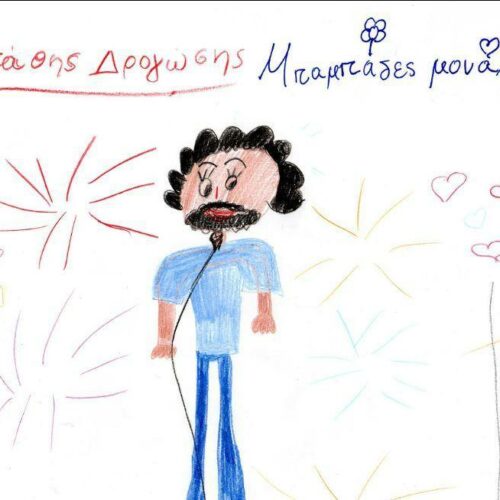 τάθης Δρογώσης Μπαμπάδες μονά